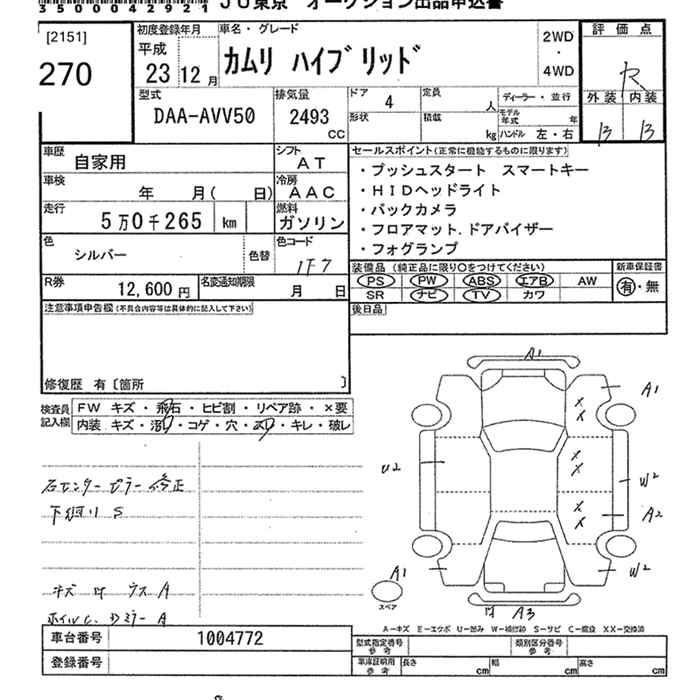 35000042921 JU東京 オークション出品申込書
[2151]
270
初度登録年月
平成
23 12 月
車名・グレード
カムリ ハイブリッド
2WD
・
4WD
評価点
R
外装 内装
B B
型式
DAA-AVV50
排気量
2493
CC
ドア 4
定員 人
ディーラー・並行
形状
積載 kg
モデル年式 年
ハンドル 左・右
車歴 自家用
シフト AT
車検 年 月( 日)
冷房 AAC
走行 5万0千265 km
燃料 ガソリン
色 シルバー
色替
色コード 1F7
R券 12,600円
名変通知期限 月 日
セールスポイント(正常に機能するものに限ります)
・プッシュスタート スマートキー
・HIDヘッドライト
・バックカメラ
・フロアマット.ドアバイザー
・フォグランプ
装備品(純正品に限り○をつけてください)
PS PW ABS エアB AW
SR ナビ TV カワ
新車保証書
有・無
後日品
注意事項申告欄(不具合内容等は具体的に記入して下さい)
修復歴 有〔箇所 〕
検査員記入欄
FW キズ・飛石・ヒビ割・リペア跡・×要
内装 キズ・汚れ・コゲ・穴・スレ・キレ・破レ
右センターピラー修正
下廻り S
キズ 凹 ウス A
ホイルC. Dミラー A
A1
A1
U2
W2
A2
W2
A1
スペア
凹 A3
A-キズ E-エクボ U-凹み W-補修跡 S-サビ C-腐蝕 XX-交換済
車台番号 1004772
登録番号
型式指定番号 参考
類別区分番号 参考
車庫証明用 参考
長さ cm
幅 cm
高さ cm